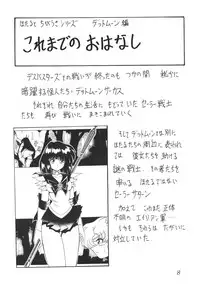 ほたると ちびうさ シリーズ デットムーン編
これまでの おはなし
デスバスターズとの戦いが 終ったのも つかの間 秘かに
暗躍する怪人たち デットムーンサーカス
それぞれ 自分たちの 生活に もどっていた セーラー戦士
たちも 再び 戦いに 巻き込まれて いった
そして デットムーンとは別に
ほたるたちの 周辺に 表われ
ては 彼女たちを 助ける
謎の 戦士 その者たちを
率いる ほたるではない
セーラーサターン
加えて これまた 正体
不明の エイリアン軍…
いま もちろんは たがいに
対立していた
8